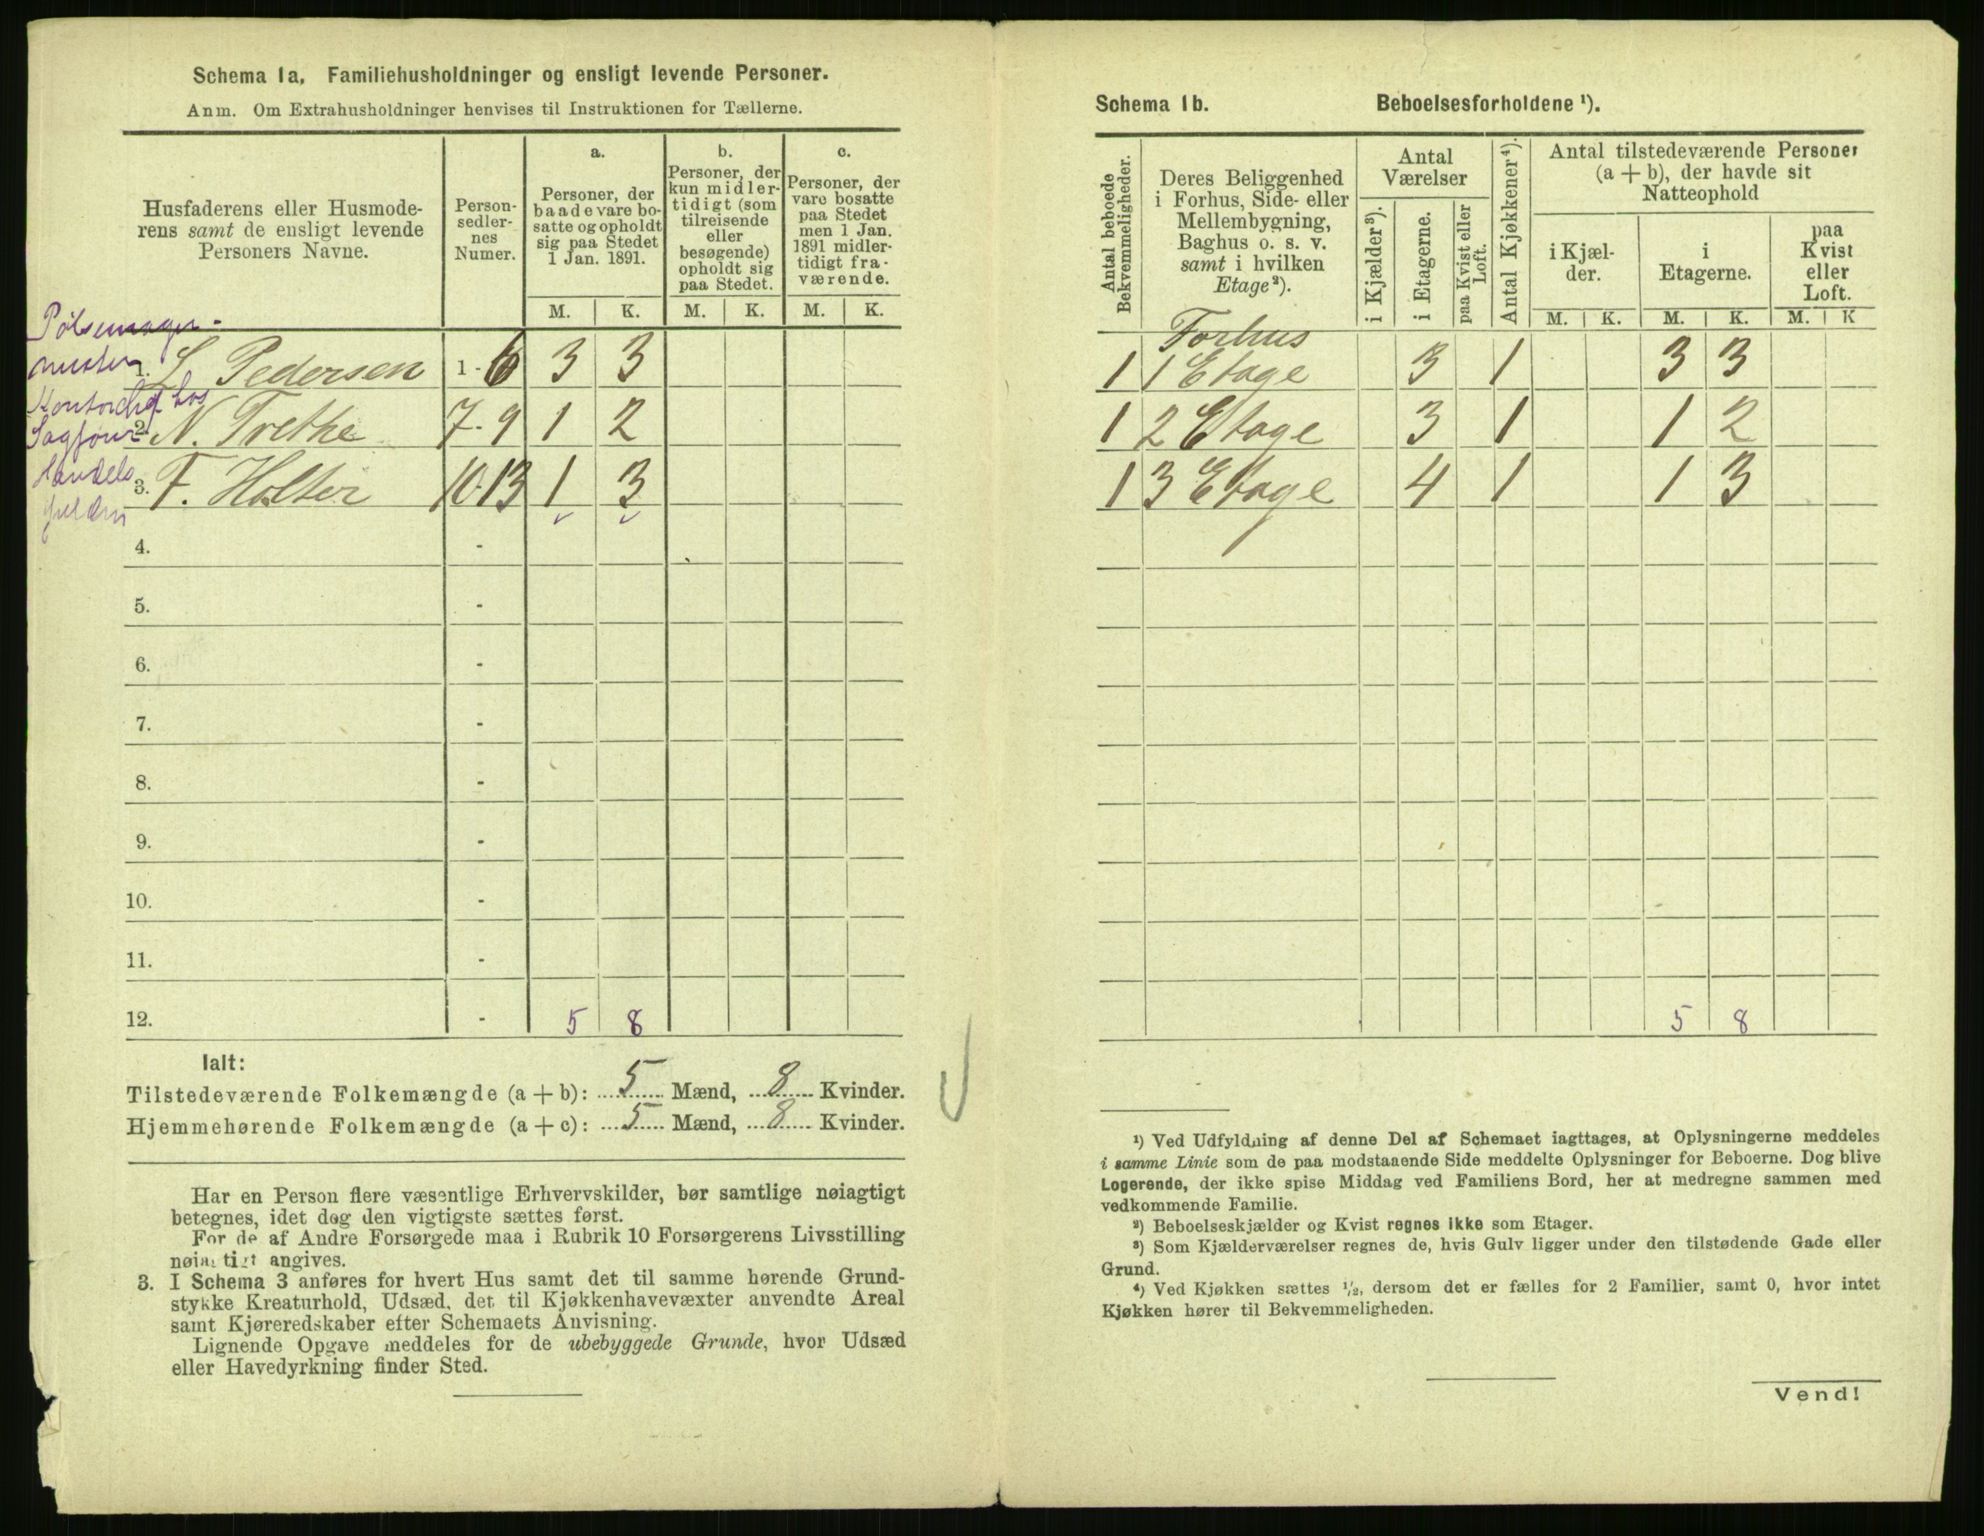 Schema 1a. Familiehusholdninger og ensligt levende Personer.
Anm. Om Extrahusholdninger henvises til Instruktionen for Tællerne.
Husfaderens eller Husmode-
rens samt de ensligt levende
Personers Navne.
Person-
sedler-
nes
Numer.
a.
Personer, der
baade vare bo-
satte og opholdt
sig paa Stedet
1 Jan. 1891.
b.
Personer, der
kun midler-
tidigt (som
tilreisende
eller
besøgende)
opholdt sig
paa Stedet.
c.
Personer, der
vare bosatte
paa Stedet
men 1 Jan.
1891 midler-
tidigt fra-
værende.
M. K. M. K. M. K.
Pølsemager-
mester
1. L. Pedersen 1-6 3 3
hos
2. N. Trethe 7-9 1 2
Handels
3. F. Holter 10-13 1 3
4. -
5. -
6. -
7. -
8. -
9. -
10. -
11. -
12. - 5 8
Ialt:
Tilstedeværende Folkemængde (a + b): 5 Mænd, 8 Kvinder.
Hjemmehørende Folkemængde (a + c): 5 Mænd, 8 Kvinder.
Har en Person flere væsentlige Erhvervskilder, bør samtlige nøiagtigt
betegnes, idet dog den vigtigste sættes først.
For de af Andre Forsørgede maa i Rubrik 10 Forsørgerens Livsstilling
nøiagtigt angives.
3. I Schema 3 anføres for hvert Hus samt det til samme hørende Grund-
stykke Kreaturhold, Udsæd, det til Kjøkkenhavevæxter anvendte Areal
samt Kjøreredskaber efter Schemaets Anvisning.
Lignende Opgave meddeles for de ubebyggede Grunde, hvor Udsæd
eller Havedyrkning finder Sted.
Schema 1b. Beboelsesforholdene ¹).
Antal beboede
Bekvemmeligheder.
Deres Beliggenhed
i Forhus, Side- eller
Mellembygning,
Baghus o. s. v.
samt i hvilken
Etage ²).
Antal
Værelser
i Kjælder ³).
i Etagerne.
paa Kvist eller
Loft.
Antal Kjøkkener ⁴).
Antal tilstedeværende Personer
(a + b), der havde sit
Natteophold
i Kjæl-
der.
i
Etagerne.
paa
Kvist
eller
Loft.
M. K. M. K. M. K
Forhus
1 1 Etage 3 1 3 3
1 2 Etage 3 1 1 2
1 3 Etage 4 1 1 3
5 8
¹) Ved Udfyldning af denne Del af Schemaet iagttages, at Oplysningerne meddeles
i samme Linie som de paa modstaaende Side meddelte Oplysninger for Beboerne. Dog blive
Logerende, der ikke spise Middag ved Familiens Bord, her at medregne sammen med
vedkommende Familie.
²) Beboelseskjælder og Kvist regnes ikke som Etager.
³) Som Kjælderværelser regnes de, hvis Gulv ligger under den tilstødende Gade eller
Grund.
⁴) Ved Kjøkken sættes ½, dersom det er fælles for 2 Familier, samt 0, hvor intet
Kjøkken hører til Bekvemmeligheden.
Vend!